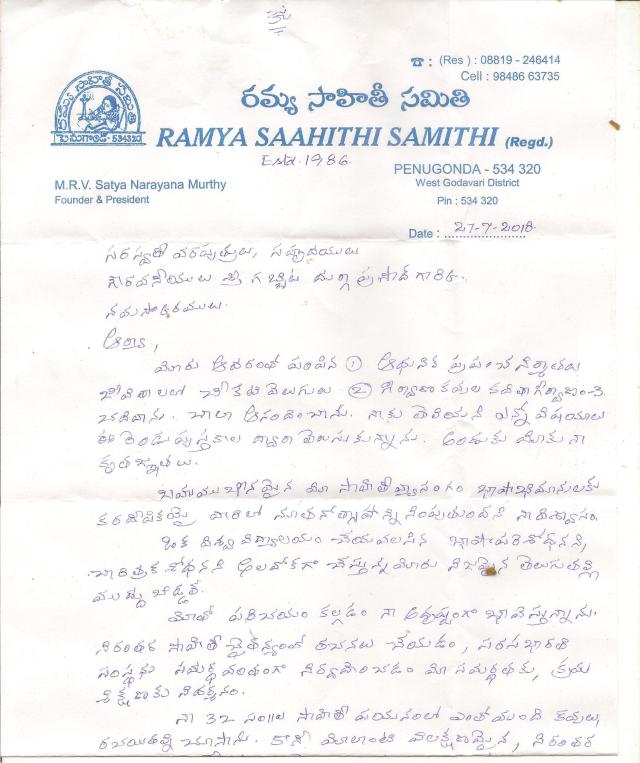 ☎ : (Res) : 08819 - 246414
Cell : 98486 63735
రమ్య సాహితీ సమితి
రమ్య సాహితీ సమితి
పెనుగొండ-534320
RAMYA SAAHITHI SAMITHI (Regd.)
Estd. 1986.
M.R.V. Satya Narayana Murthy
Founder & President
PENUGONDA - 534 320
West Godavari District
Pin : 534 320
Date : 27-7-2018
సరస్వతీ వరపుత్రులు, సహృదయులు
గౌరవనీయులు శ్రీ గబ్బిట దుర్గా ప్రసాద్ గారికి,
నమస్కారములు.
ఆర్యా,
మీరు ఆదరంతో పంపిన ① ఆధునిక ప్రపంచ నిర్మాతలు
జీవితాలలో చీకటి వెలుగులు ② గీర్వాణ కవుల కవితా గీర్వాణం-3
చదివాను. చాలా ఆనందించాను. నాకు తెలియని ఎన్నో విషయాలు
ఈ రెండు పుస్తకాల ద్వారా తెలుసుకున్నాను. అందుకు మీకు నా
కృతజ్ఞతలు.
బహుముఖీనమైన మీ సాహితీ వ్యాసంగం భాషాభిమానులకు
కరదీపికయై వారిలో నూతనోత్సాహాన్ని నింపుతుందని నా విశ్వాసం.
ఒక విశ్వ విద్యాలయం చేయవలసిన భాషా పరిశోధనని,
చారిత్రక శోధనని అలవోకగా చేస్తున్న మీరు నిజమైన తెలుగుతల్లి
ముద్దు బిడ్డ.
మీతో పరిచయం కల్గడం నా అదృష్టంగా భావిస్తున్నాను.
నిరంతర సాహితీ చైతన్యంతో రచనలు చేయడం, సరసభారతి
సంస్థను సమర్థవంతంగా నిర్వహించడం మీ సమర్థతకు, క్రమ
శిక్షణకు నిదర్శనం.
నా 32 సం॥ల సాహితీ పయనంలో ఎంతోమంది కవులు,
రచయితల్ని చూసాను. కానీ మీలాంటి విలక్షణమైన, నిరంతర